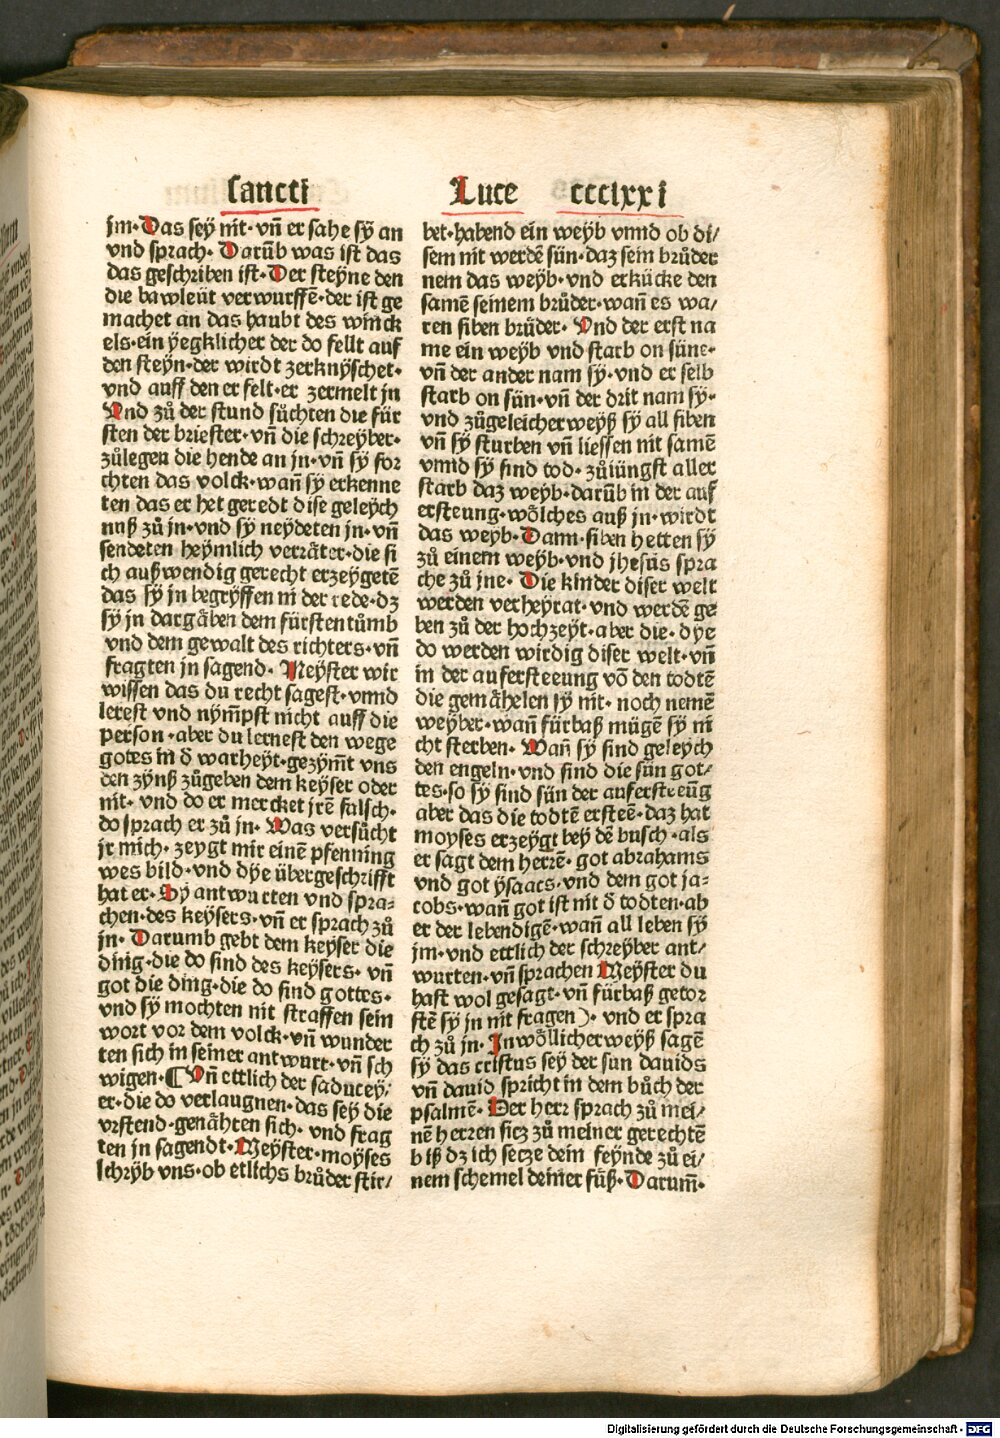 sancti
Luce ccclxxi
jm·Das seÿ nit·vñ er sahe sÿ an
vnd sprach·Darūb was ist das
das geschriben ist·Der steÿne den
die bawleüt verwurffē·der ist ge
machet an das haubt des winck
els·ein ÿegklicher der do fellt auf
den steÿn·der wirdt zerknÿschet·
vnd auff den er felt·er zermelt jn
Und zů der stund sůchten die für
sten der briester·vñ die schreÿber·
zůlegen die hende an jn·vñ sÿ for
chten das volck·wañ sÿ erkenne
ten das er het geredt dise geleÿch
nuß zů jn·vnd sÿ neÿdeten jn·vñ
sendeten heÿmlich verräter·die si
ch außwendig gerecht erzeÿgetē
das sÿ jn begrÿffen in der rede·dz
sÿ jn dargäben dem fürstentůmb
vnd dem gewalt des richters·vñ
fragten jn sagend·Meÿster wir
wissen das du recht sagest·vnnd
lerest vnd nÿm̄pst nicht auff die
person·aber du lernest den wege
gotes in d̄ warheÿt·gezÿm̄t vns
den zÿnß zůgeben dem keÿser oder
nit·vnd do er mercket jrē falsch·
do sprach er zů jn·Was versůcht
jr mich·zeÿgt mir einē pfenning
wes bild·vnd dÿe übergeschrifft
hat er·Sy antwurten vnd spra⸗
chen·des keÿsers·vñ er sprach zů
jn·Darumb gebt dem keÿser die
ding·die do sind des keÿsers·vñ
got die ding·die do sind gottes·
vnd sÿ mochten nit straffen sein
wort vor dem volck·vñ wunder
ten sich in seiner antwurt·vñ sch
wigen·¶Vñ ettlich der saducey/
er·die do verlaugnen·das seÿ die
vrstend·genähten sich·vnd frag
ten jn sagendt·Meÿster·moÿses
schrÿb vns·ob etlichs brůder stir/
bet·habend ein weÿb vnnd ob di/
sem nit werdē sün·daz sein brůder
nem das weÿb·vnd erkücke den
samē seinem brůder·wañ es wa/
ren siben brůder·Und der erst na
me ein weÿb vnd starb on süne·
vñ der ander nam sÿ·vnd er selb
starb on sün·vñ der drit nam sÿ·
vnd zůgeleicherweÿß sÿ all siben
vñ sÿ sturben vñ liessen nit samē
vnnd sÿ sind tod·zůiüngst aller
starb daz weÿb·darūb in der auf
ersteung·wölches auß jn·wirdt
das weÿb·Dann·siben hetten sÿ
zů einem weÿb·vnd jhesus spra
che zů jne·Die kinder diser welt
werden verheÿrat·vnd werdē ge
ben zů der hochzeÿt·aber die·dÿe
do werden wirdig diser welt·vñ
in der aufersteeung vō den todtē
die gemähelen sÿ nit·noch nemē
weÿber·wañ fürbaß mügē sÿ ni
cht sterben·Wañ sÿ sind geleÿch
den engeln·vnd sind die sün got/
tes·so sÿ sind sün der aufersteeūg
aber das die todtē ersteē·daz hat
moyses erzeÿgt beÿ dē busch·als
er sagt dem herrē·got abrahams
vnd got ÿsaacs·vnd dem got ja⸗
cobs·wañ got ist nit d̄ todten·ab
er der lebendigē·wañ all leben sÿ
jm·vnd ettlich der schreÿber ant/
wurten·vñ sprachen Meÿster du
hast wol gesagt·vñ fürbaß getor
stē sÿ jn nit fragen)·vnd er spra
ch zů jn·In wöllicherweÿß sagē
sÿ das cristus seÿ der sun dauids
vñ dauid spricht in dem bůch der
psalmē·Der herr sprach zů mei/
nē herren sicz zů meiner gerechtē
biß dz ich secze dein feÿnde zů ei/
nem schemel deiner füß·Darum̄·
Digitalisierung gefördert durch die Deutsche Forschungsgemeinschaft - DFG